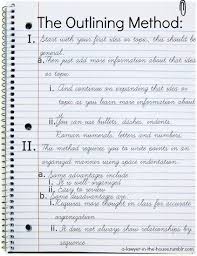 The Outlining Method:
I. Start with your first idea or topic, this should be
general.
a. Then just add more information about that idea
or topic.
i. And continue on expanding that idea or
topic as you learn more information about
it.
ii. You can use bullets, dashes, indents,
Roman numerals, letters and numbers.
II. This method requires you to write points in an
organized manner using space indentation.
a. Some advantages include
i. It is well-organized
ii. Easy to review
b. Some disadvantages are
i. Requires more thought in class for accurate
organization
ii. It does not always show relationships by
sequence.
a-lawyer-in-the-house.tumblr.com